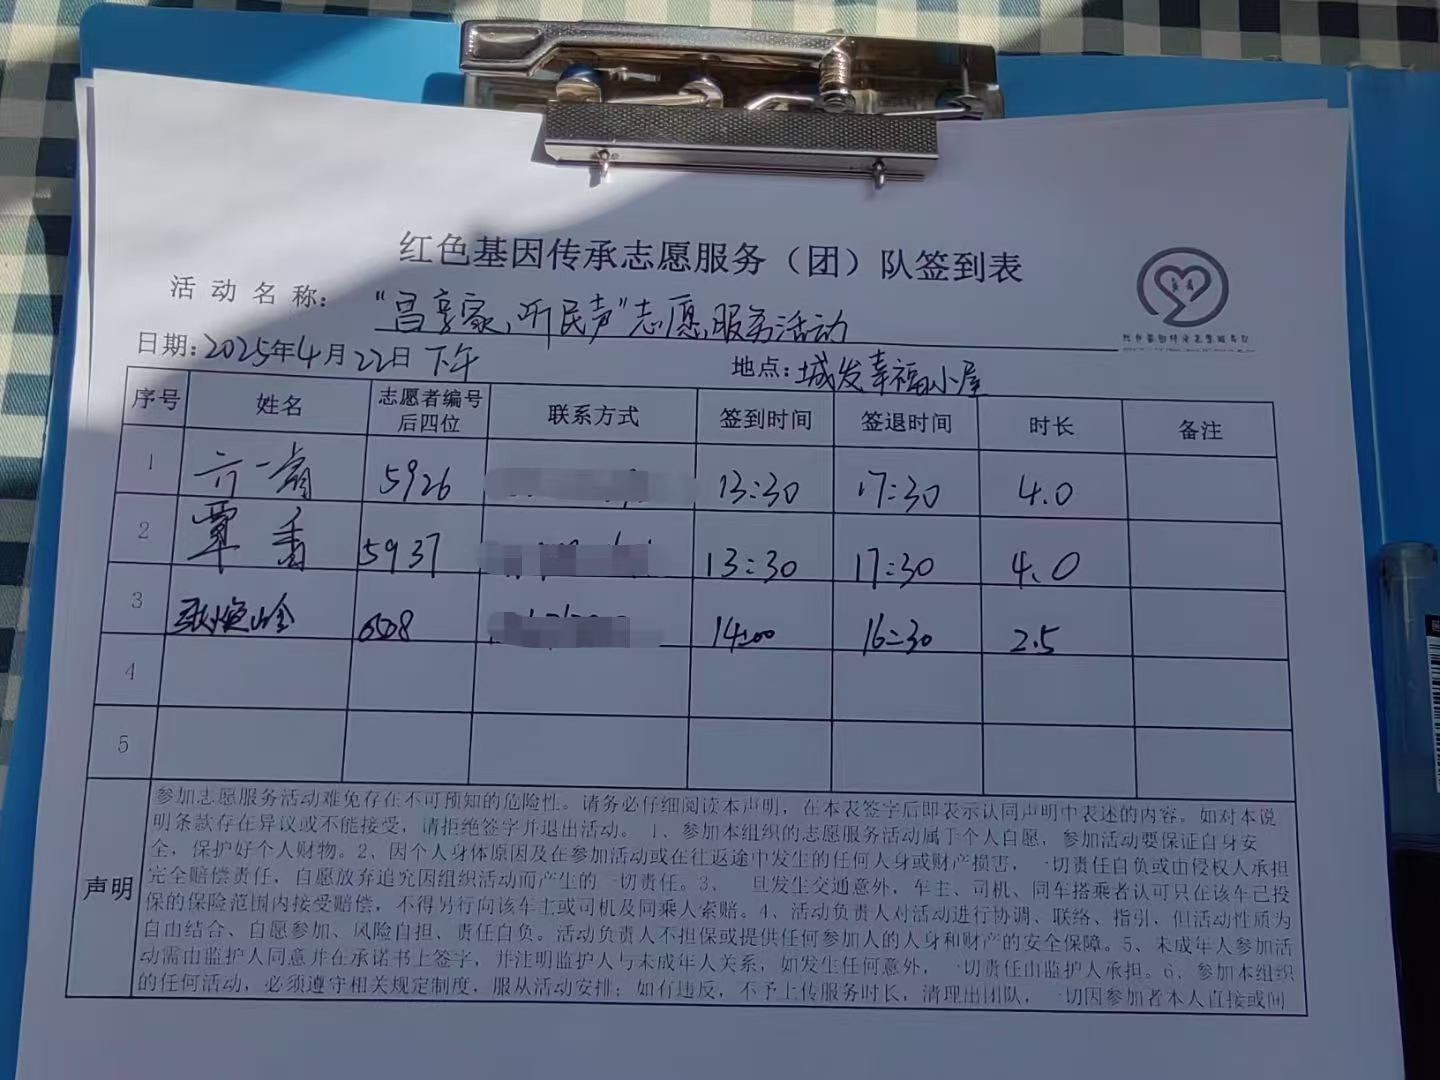 红色基因传承志愿服务（团）队签到表
活动名称："昌享家,听民声"志愿服务活动
日期:2025年4月22日 下午 地点:城发幸福小屋
序号 姓名 志愿者编号后四位 联系方式 签到时间 签退时间 时长 备注
1 5926 13:30 17:30 4.0
2 覃香 5937 13:30 17:30 4.0
3 6508 14:00 16:30 2.5
4
5
声明
参加志愿服务活动难免存在不可预知的危险性。请务必仔细阅读本声明，在本表签字后即表示认同声明中表述的内容。如对本说
明条款存在异议或不能接受，请拒绝签字并退出活动。1、参加本组织的志愿服务活动属于个人自愿，参加活动要保证自身安
全，保护好个人财物。2、因个人身体原因及在参加活动或在往返途中发生的任何人身或财产损害，一切责任自负或由侵权人承担
完全赔偿责任，自愿放弃追究因组织活动而产生的一切责任。3、一旦发生交通意外，车主、司机、同车搭乘者认可只在该车已投
保的保险范围内接受赔偿，不得另行向该车主或司机及同乘人索赔。4、活动负责人对活动进行协调、联络、指引，但活动性质为
自由结合、自愿参加、风险自担、责任自负。活动负责人不担保或提供任何参加人的人身和财产的安全保障。5、未成年人参加活
动需由监护人同意并在承诺书上签字，并注明监护人与未成年人关系，如发生任何意外，一切责任由监护人承担。6、参加本组织
的任何活动，必须遵守相关规定制度，服从活动安排；如有违反，不予上传服务时长，清理出团队，一切因参加者本人直接或间